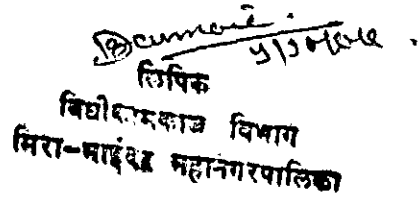 लिपिक
विधीकामकाज विभाग
मिरा-भाईंदर महानगरपालिका